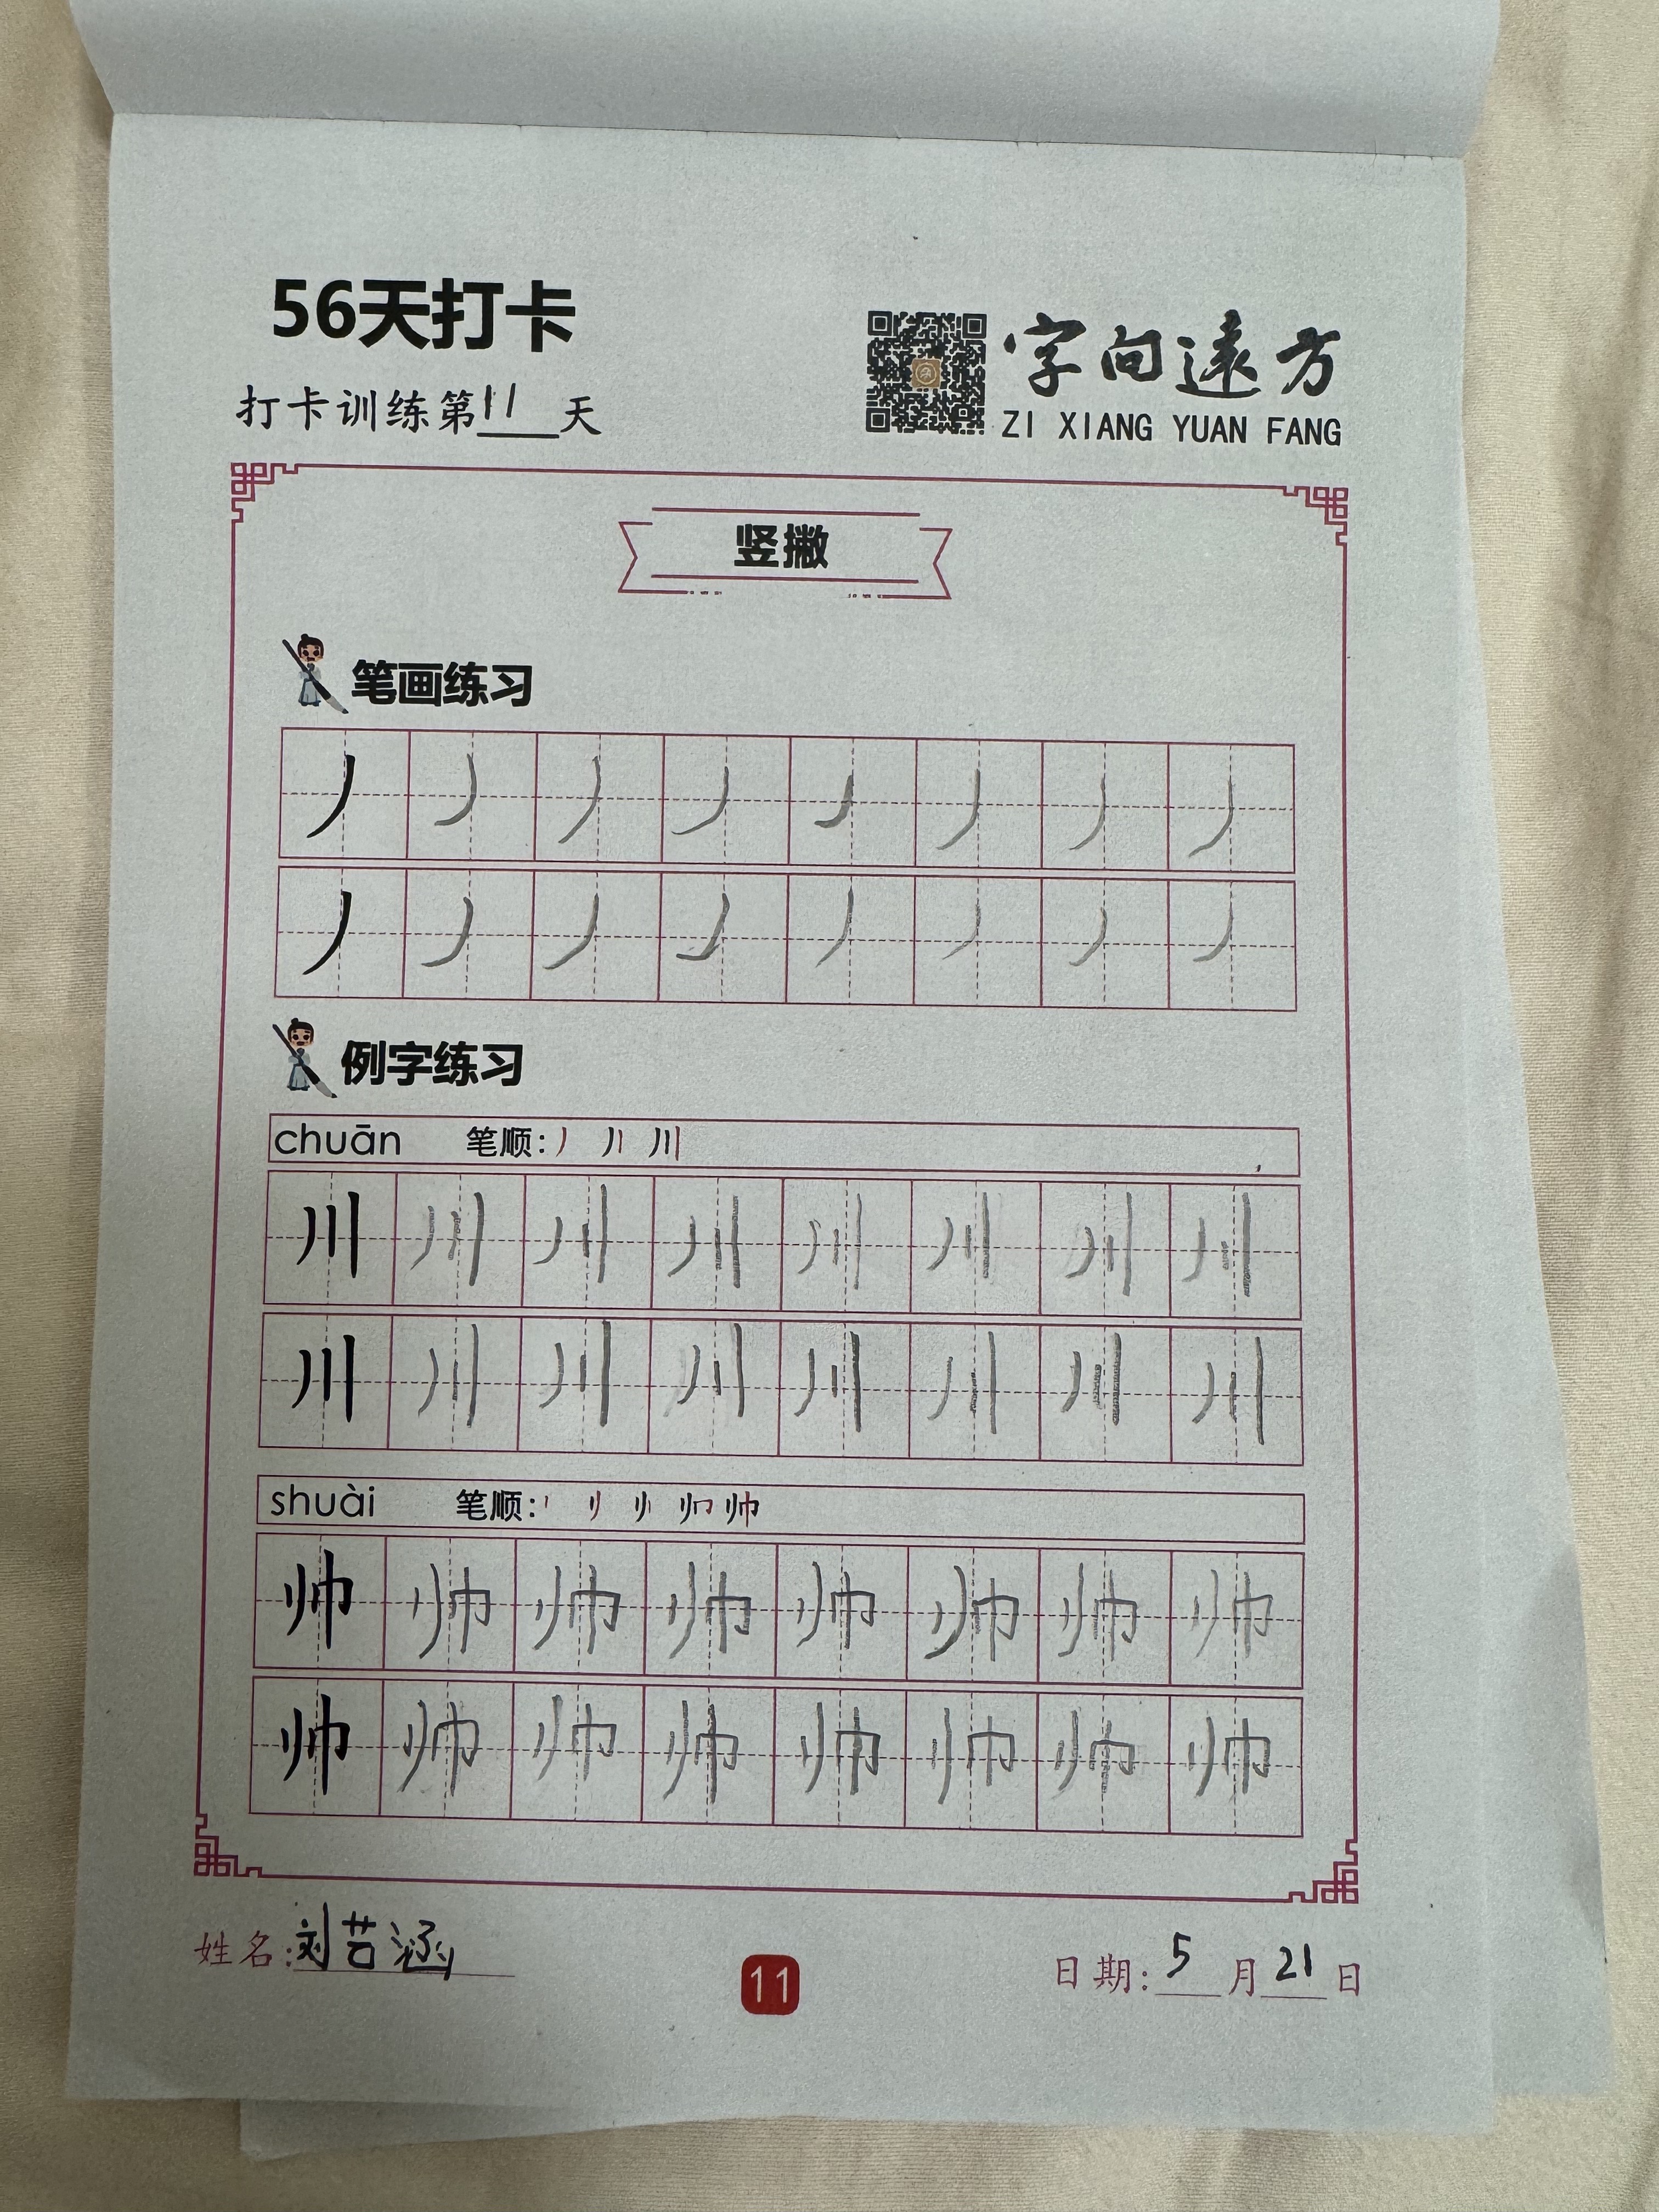 56天打卡
打卡训练第11天
字向遠方
ZI XIANG YUAN FANG
竖撇
笔画练习
丿丿丿丿丿丿丿丿
丿丿丿丿丿丿丿丿
例字练习
chuān 笔顺: 丿 川
川川川川川川川川
川川川川川川川川
shuài 笔顺: 帅
帅帅帅帅帅帅帅帅
帅帅帅帅帅帅帅帅
姓名:刘芸涵
11
日期:5月21日